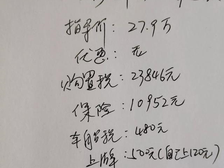 指导价: 27.9万
优惠: 无
购置税: 23846元
保险: 10952元
车船税: 480元
上牌: 500元(自己上120元)